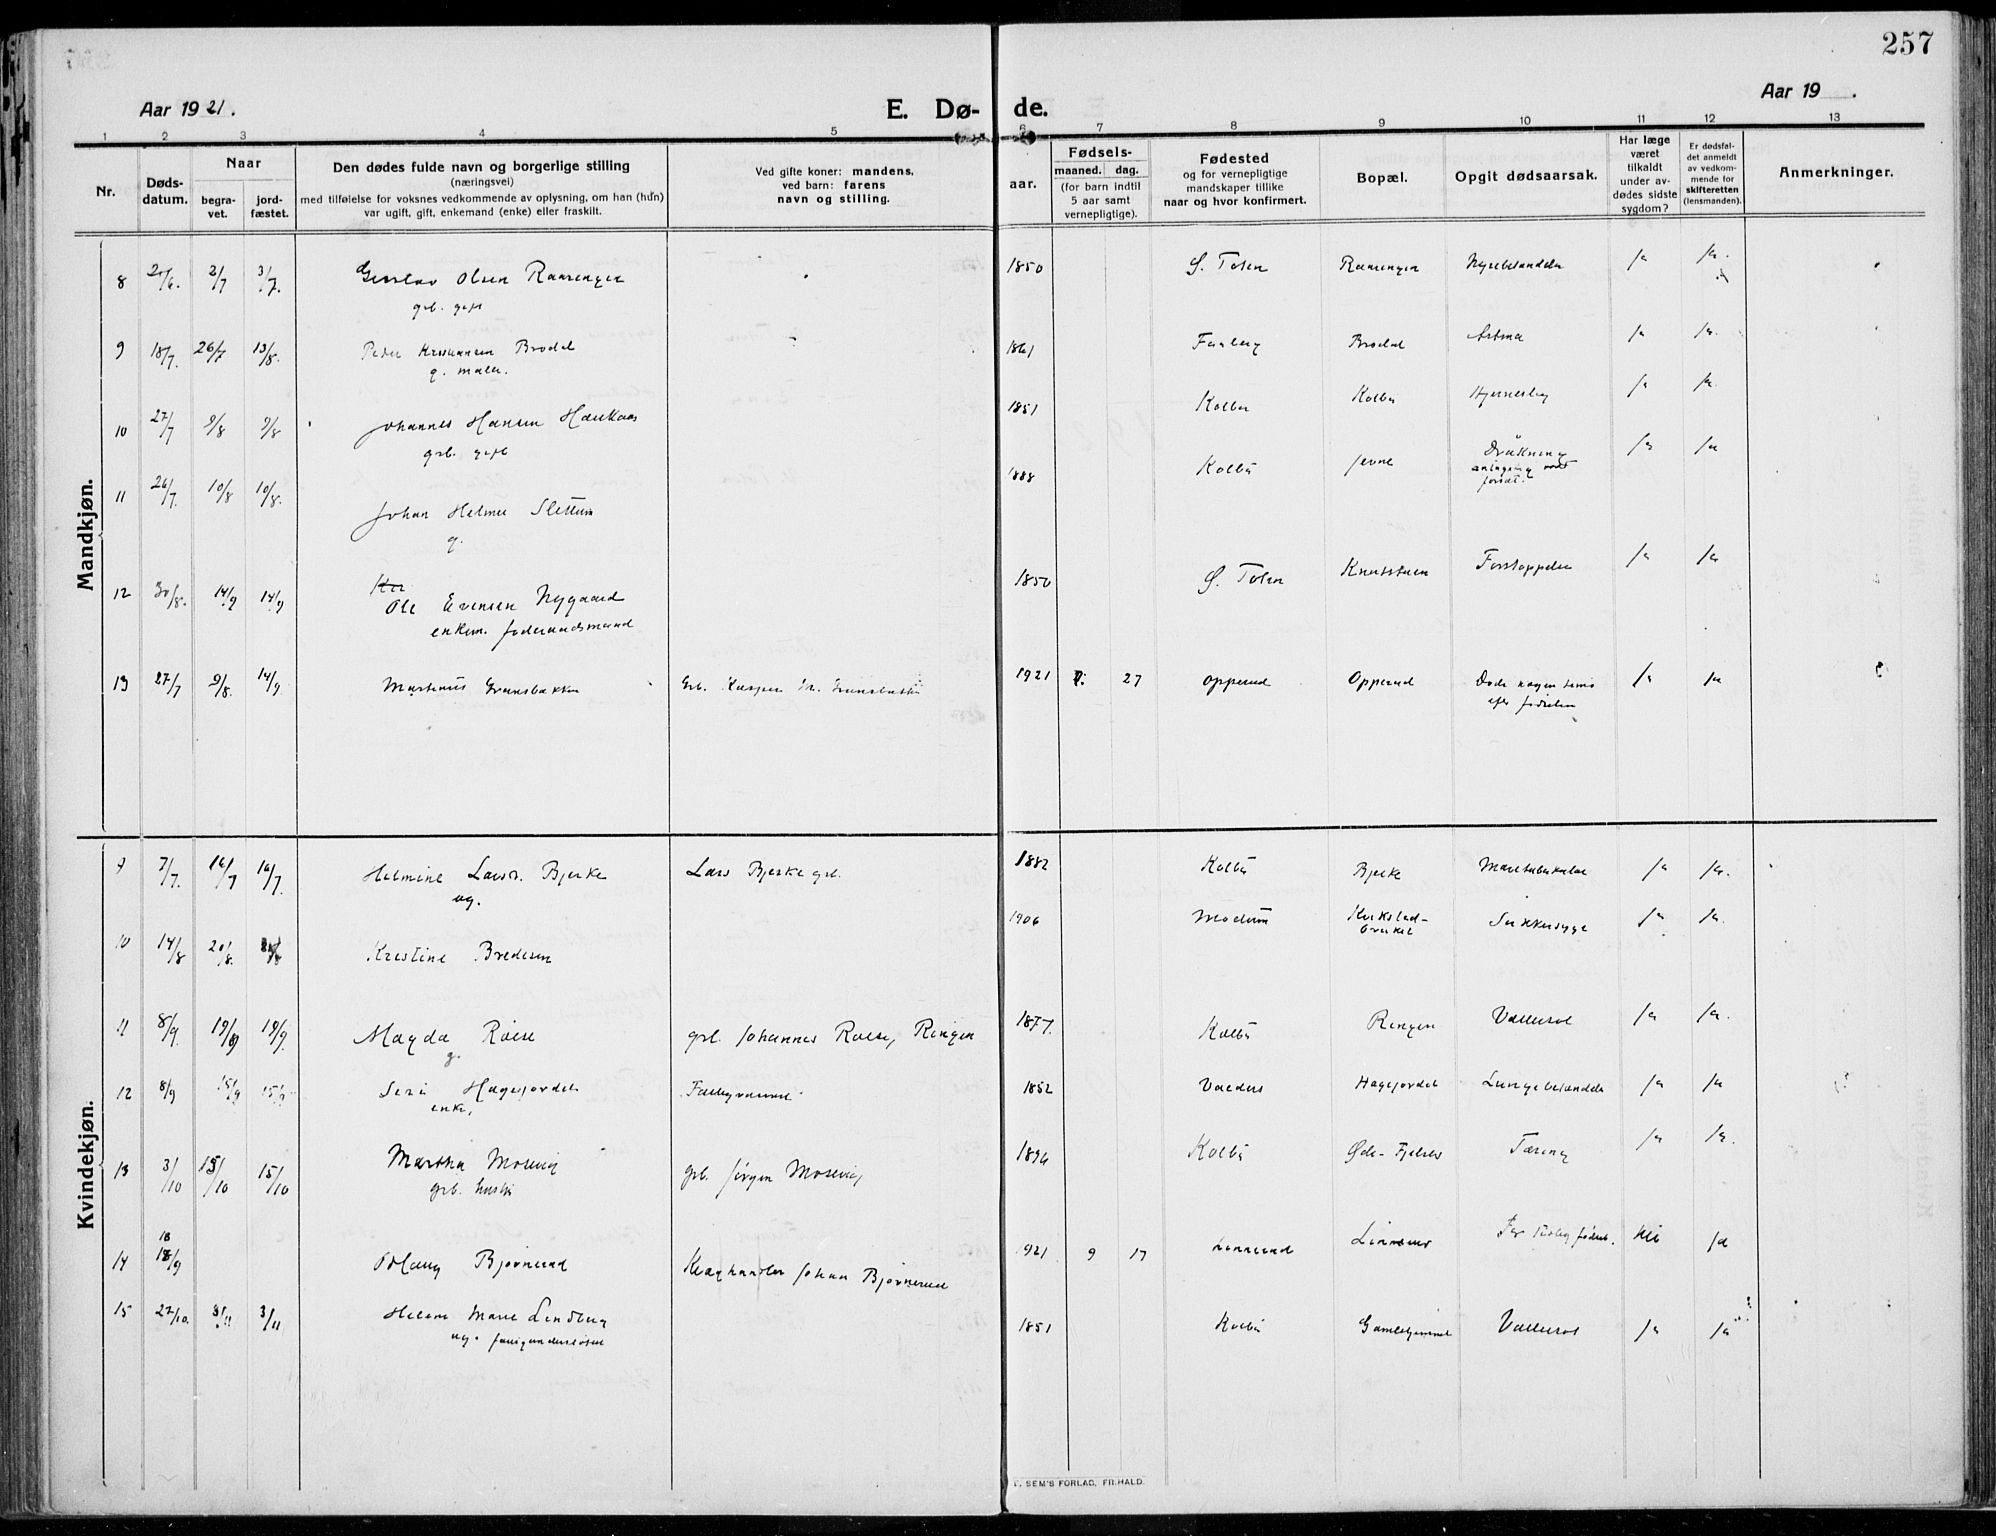 257
Aar 1921.
E. Dø-
de.
Aar 19 .
1 2 3 4 5 6 7 8 9 10 11 12 13
Nr.
Døds-
datum.
Naar
begra-
vet.
jord-
fæstet.
Den dødes fulde navn og borgerlige stilling
(næringsvei)
med tilføielse for voksnes vedkommende av oplysning, om han (hun)
var ugift, gift, enkemand (enke) eller fraskilt.
Ved gifte koner: mandens,
ved barn: farens
navn og stilling.
aar.
Fødsels-
maaned. dag.
(for barn indtil
5 aar samt
vernepligtige).
Fødested
og for vernepligtige
mandskaper tillike
naar og hvor konfirmert.
Bopæl.
Opgit dødsaarsak.
Har læge
været
tilkaldt
under av-
dødes sidste
sygdom?
Er dødsfal-
det anmeldt
av vedkom-
mende for
skifteretten
(lensmanden).
Anmerkninger.
Mandkjøn.
8 2/7 3/7. Olsen Raasengen 1850 Ø. Toten Raasengen Nyrebetændelse ja ja.
grb. gift
9 18/7. 26/7 13/8. Peder Kristiansen Brodal 1861 Faaberg Brodal Astma ja ja.
g. maler.
10 27/7 9/8 9/8 Johannes Hansen 1851 Kolbu Kolbu ja ja.
grb. gift
11 26/7. 10/8 10/8. Johan Helmer Slettum 1888 Kolbu Jevne ja ja
g.
12 30/8. 14/9 14/9 Ole Evensen Nygaard 1850 Ø. Toten Knutstuen Forstoppelse ja ja
enkem. føderaadsmand
13 27/7 9/8. 14/9. Martinus Gransbakken Grb. Kasper 1921 7. 27 Opperud Opperud Døde nogen timer ja ja
efter fødselen
Kvindekjøn.
9 7/7. 16/7 16/7. Helmine Larsd. Bjerke Lars Bjerke grb. 1882 Kolbu Bjerke Mavetuberkulose ja ja.
ug.
10 14/8 20/8. Kristine Bredesen 1906 Modum Sukkersyge ja ja.
11 8/9. 19/9 19/9. Magda Roise grb. Johannes Roise, Ringen 1877. Kolbu Ringen Vattersot ja ja.
g.
12 8/9 15/9 15/9 Siri Hagejordet 1852 Valders Hagejordet Lungebetændelse ja ja
enke,
13 3/10 15/10 15/10 Martha Mosevig grb. Jørgen Mosevig 1896 Kolbu Øde-Fjelser Tæring ja ja.
grb. hustr
14 18/9 Bjørnerud Kraghandler Johan Bjørnerud 1921 9 17 Linnerud nei ja
15 27/10. 3/11 3/11 Helene Marie Lindberg 1851 Kolbu Gamlehjemmet Vattersot ja ja
ug. fattigunderstøttet
F. SEM'S FORLAG, FR.HALD.